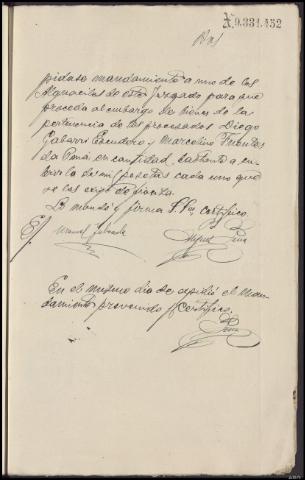 X 9.331.452
pidase mandamiento a uno de los
Alguaciles de este Juzgado para que
proceda al embargo de bienes de la
pertenencia de los procesados Diego
Gabarri Escudero y Marcelino Fuentes
la Peña en cantidad bastante a cu-
brir la de mil pesetas cada uno que
se les exije de fianza.
Lo mandó y firma S. Sª certifico.
E/
En el mismo dia se espidió el man-
damiento prevenido certifico.